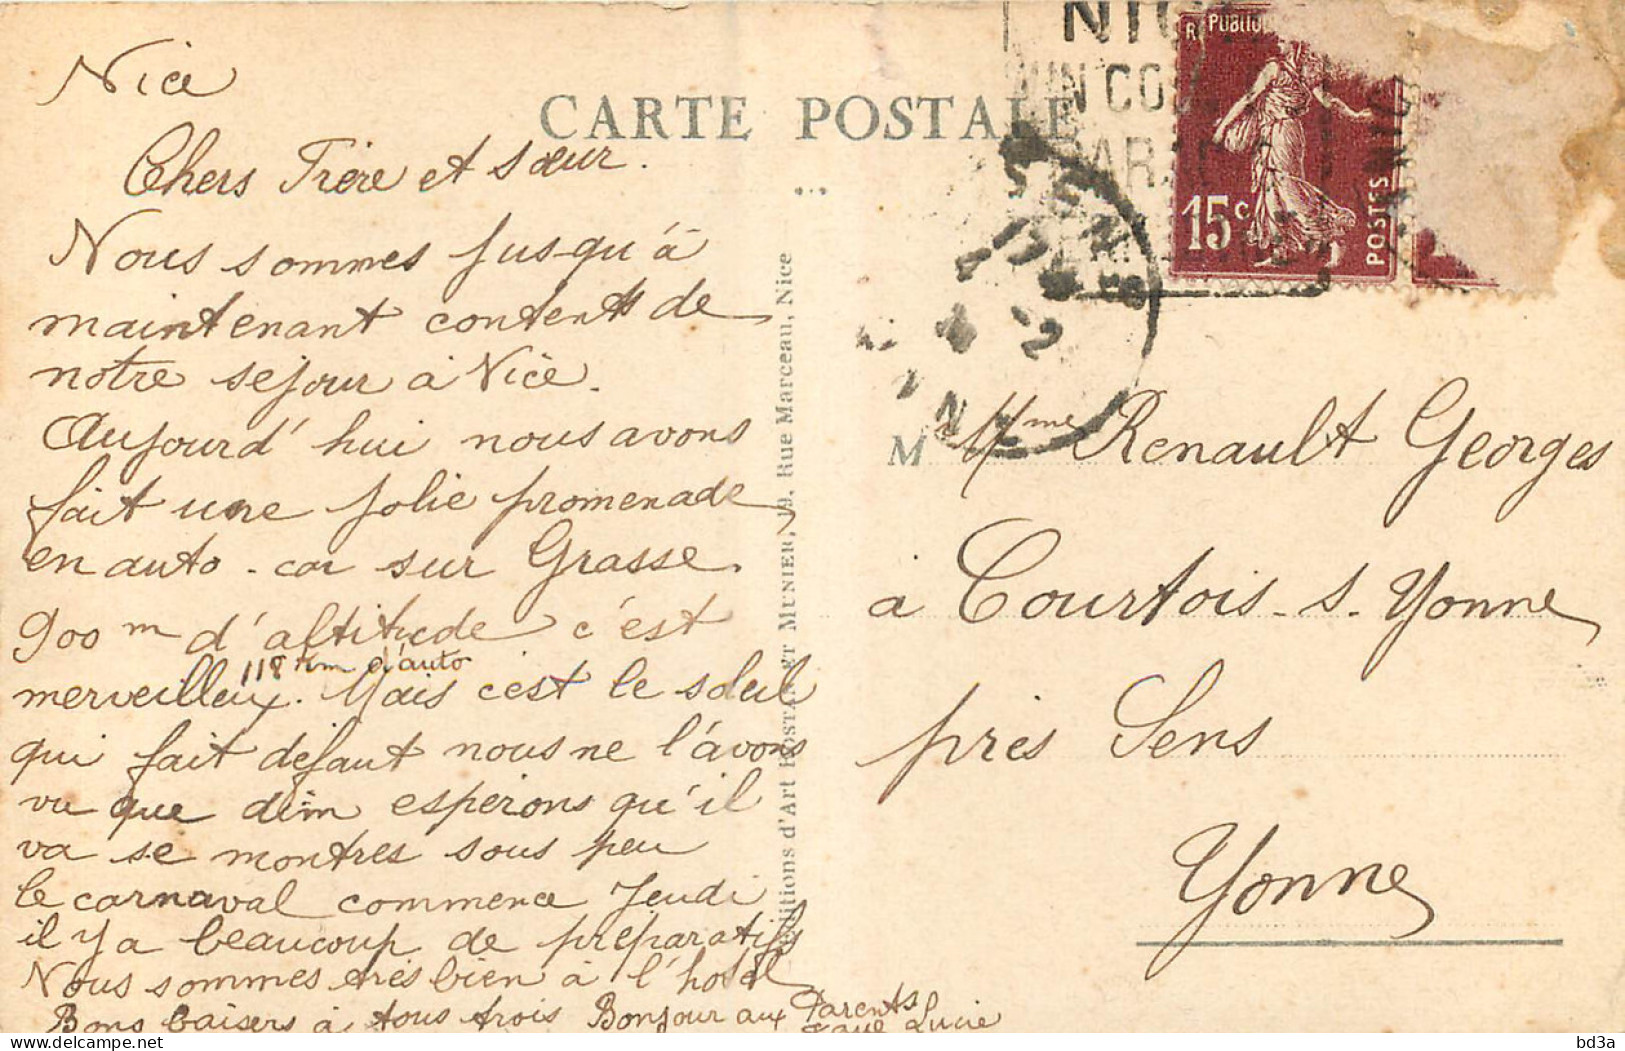 Nice
CARTE POSTALE
Chers Frère et Sœur.
Nous sommes jusqu'à
maintenant contents de
notre sejour à Nice.
Aujourd'hui nous avons
fait une jolie promenade
en auto - car sur Grasse
900 m d'altitude c'est
118 km d'auto
merveilleux. Mais c'est le soleil
qui fait défaut nous ne l'avons
vu que dim esperons qu'il
va se montres sous peu
le carnaval commence Jeudi
il y a beaucoup de préparatifs
Nous sommes très bien à l'hotel
Bons baisers à tous trois Bonjour aux Parents
Lucie
Editions d'Art ROSTAN ET MUNIER, 19, Rue Marceau, Nice
NIC
15c
POSTES
M Mme Renault Georges
à Courtois - s - Yonne
près Sens
Yonne
bd3a